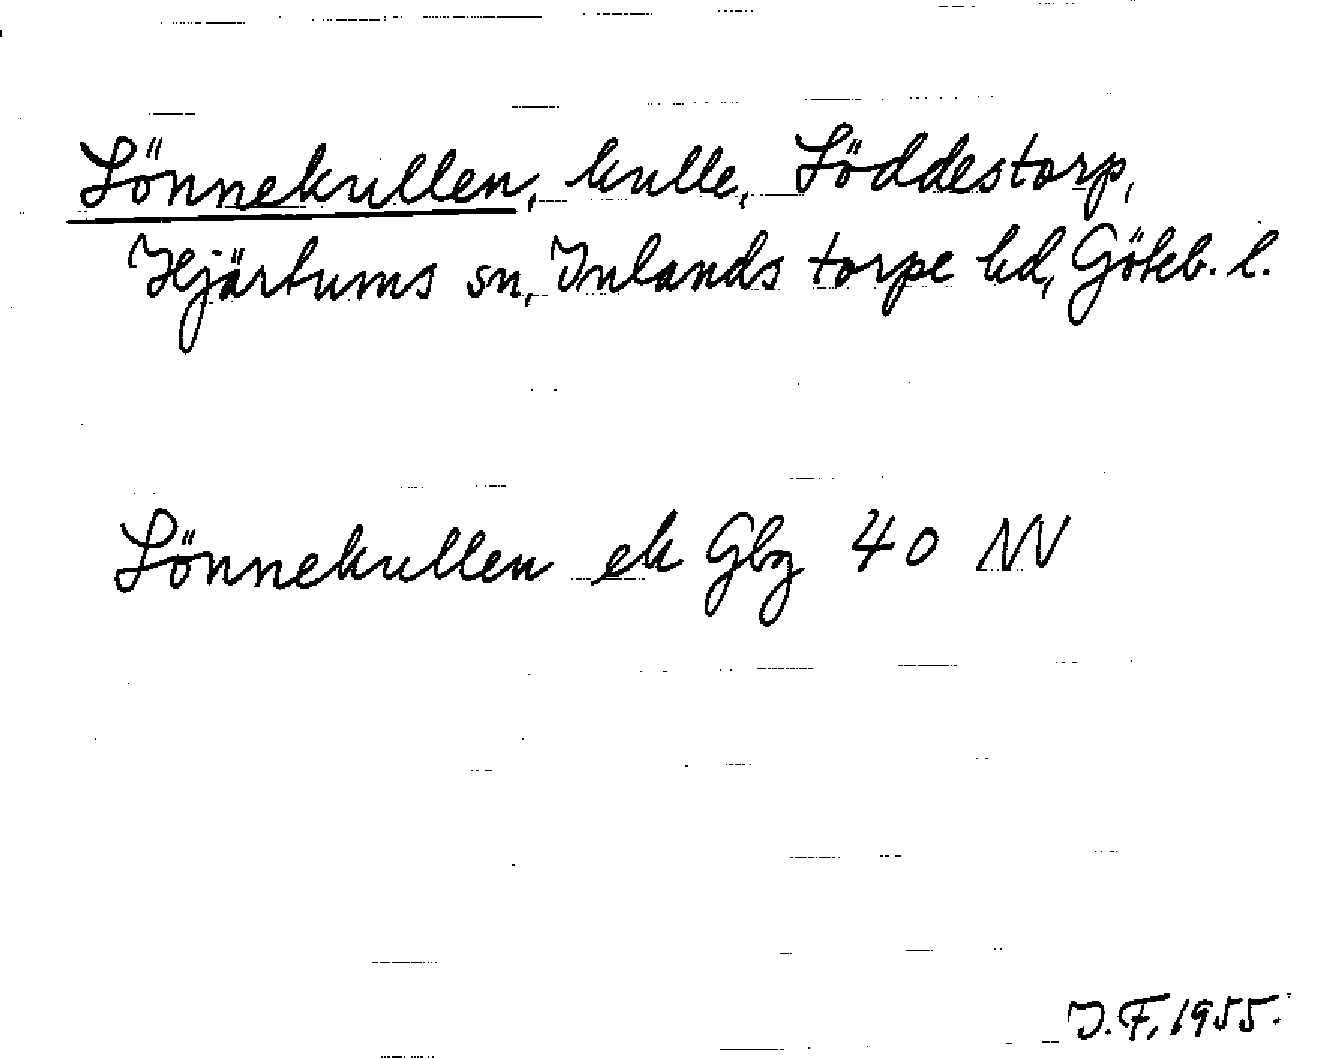 Lönnekullen, kulle, Löddestorp,
Hjärtums sn, Inlands torpe hd, Göteb. l.
Lönnekullen ek Gbg 40 NV
I.F, 1955.